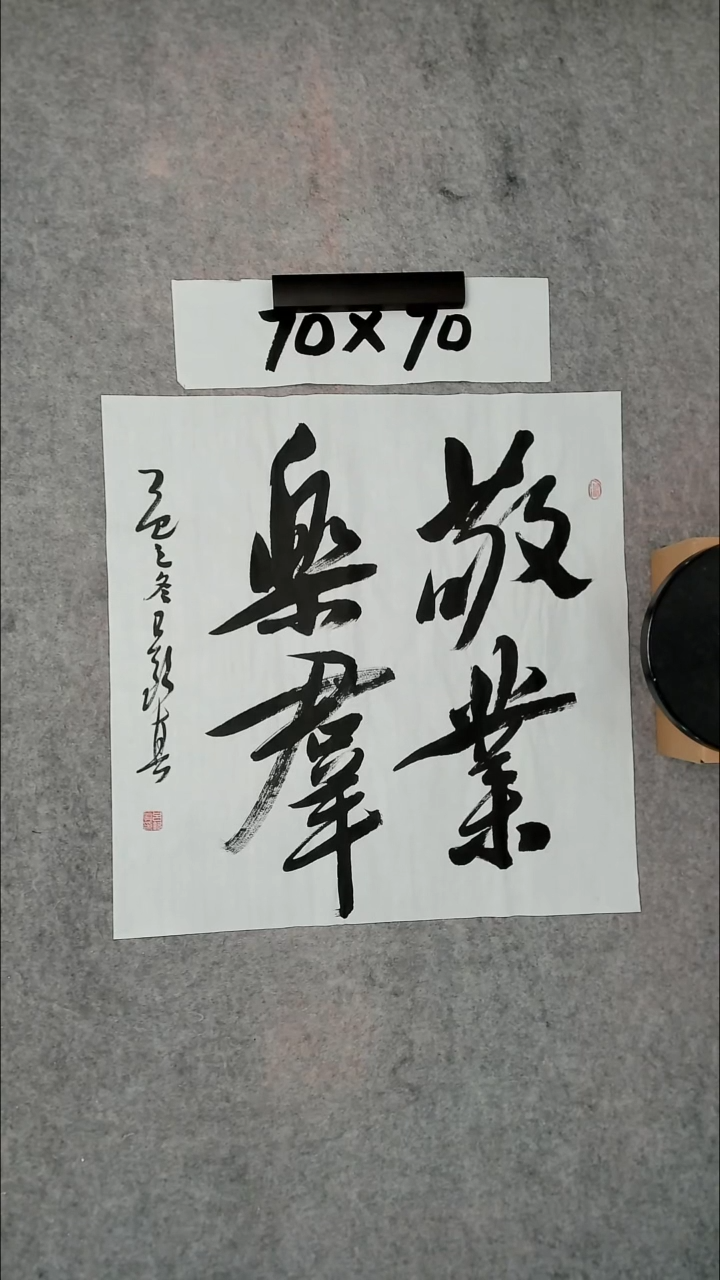 70×70
敬業
樂羣
乙巳冬月